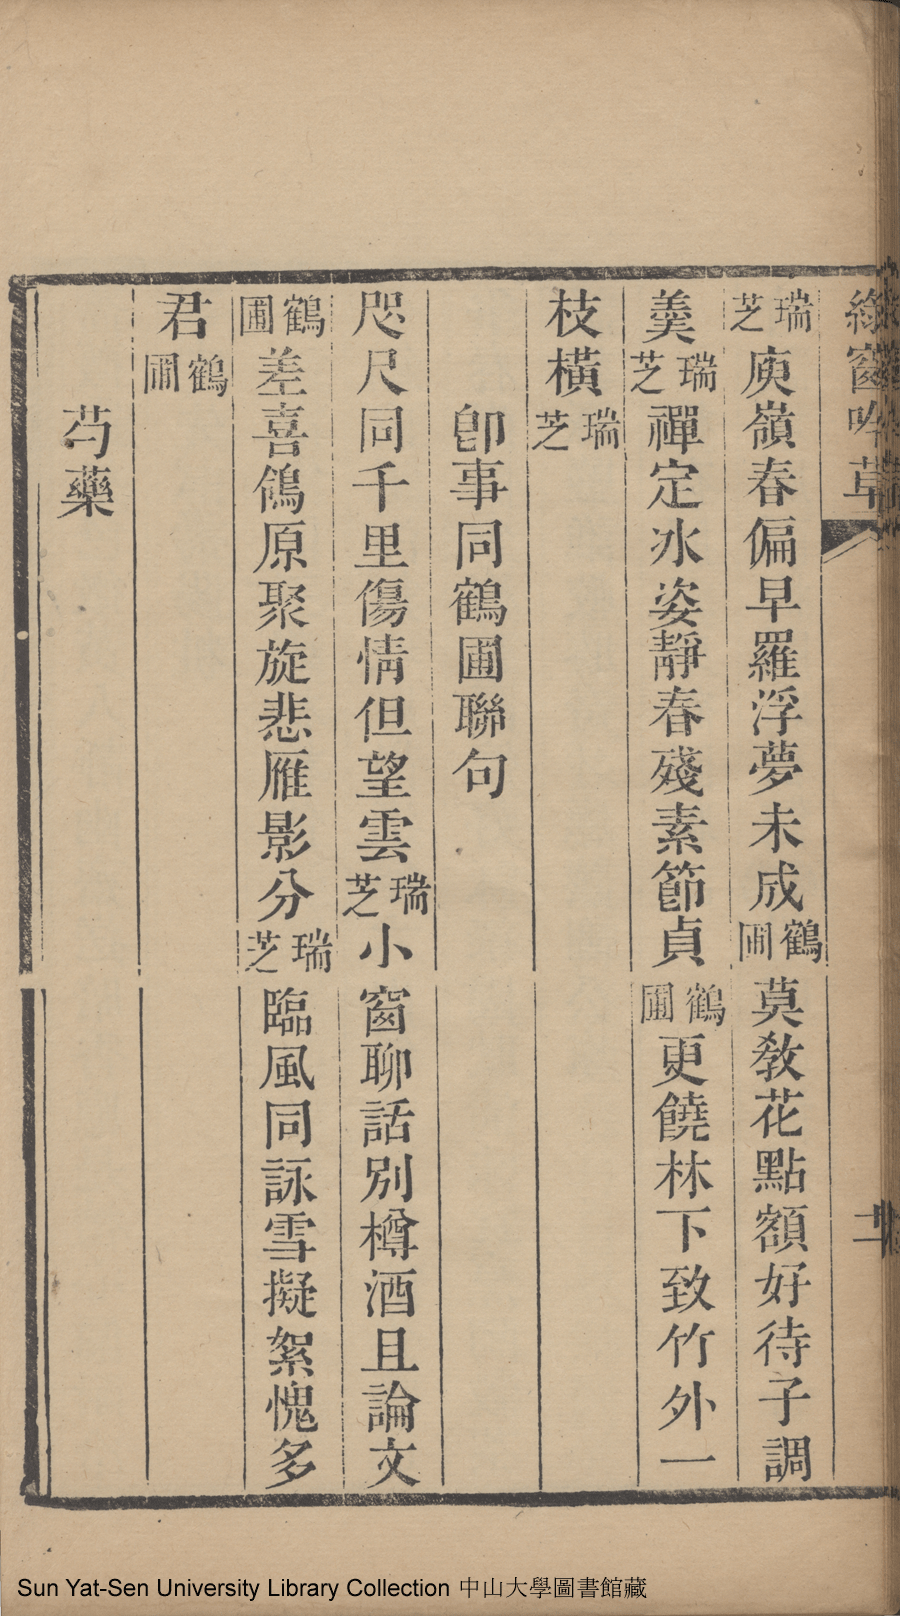 綠窗吟草
二
瑞芝庾嶺春偏早羅浮夢未成鶴圃莫敎花點額好待子調
羹瑞芝禪定水姿靜春殘素節貞鶴圃更饒林下致竹外一
枝橫瑞芝
卽事同鶴圃聯句
咫尺同千里傷情但望雲瑞芝小窗聊話別樽酒且論文
鶴圃差喜鴒原聚旋悲雁影分瑞芝臨風同詠雪擬絮愧多
君鶴圃
芍藥
Sun Yat-Sen University Library Collection 中山大學圖書館藏